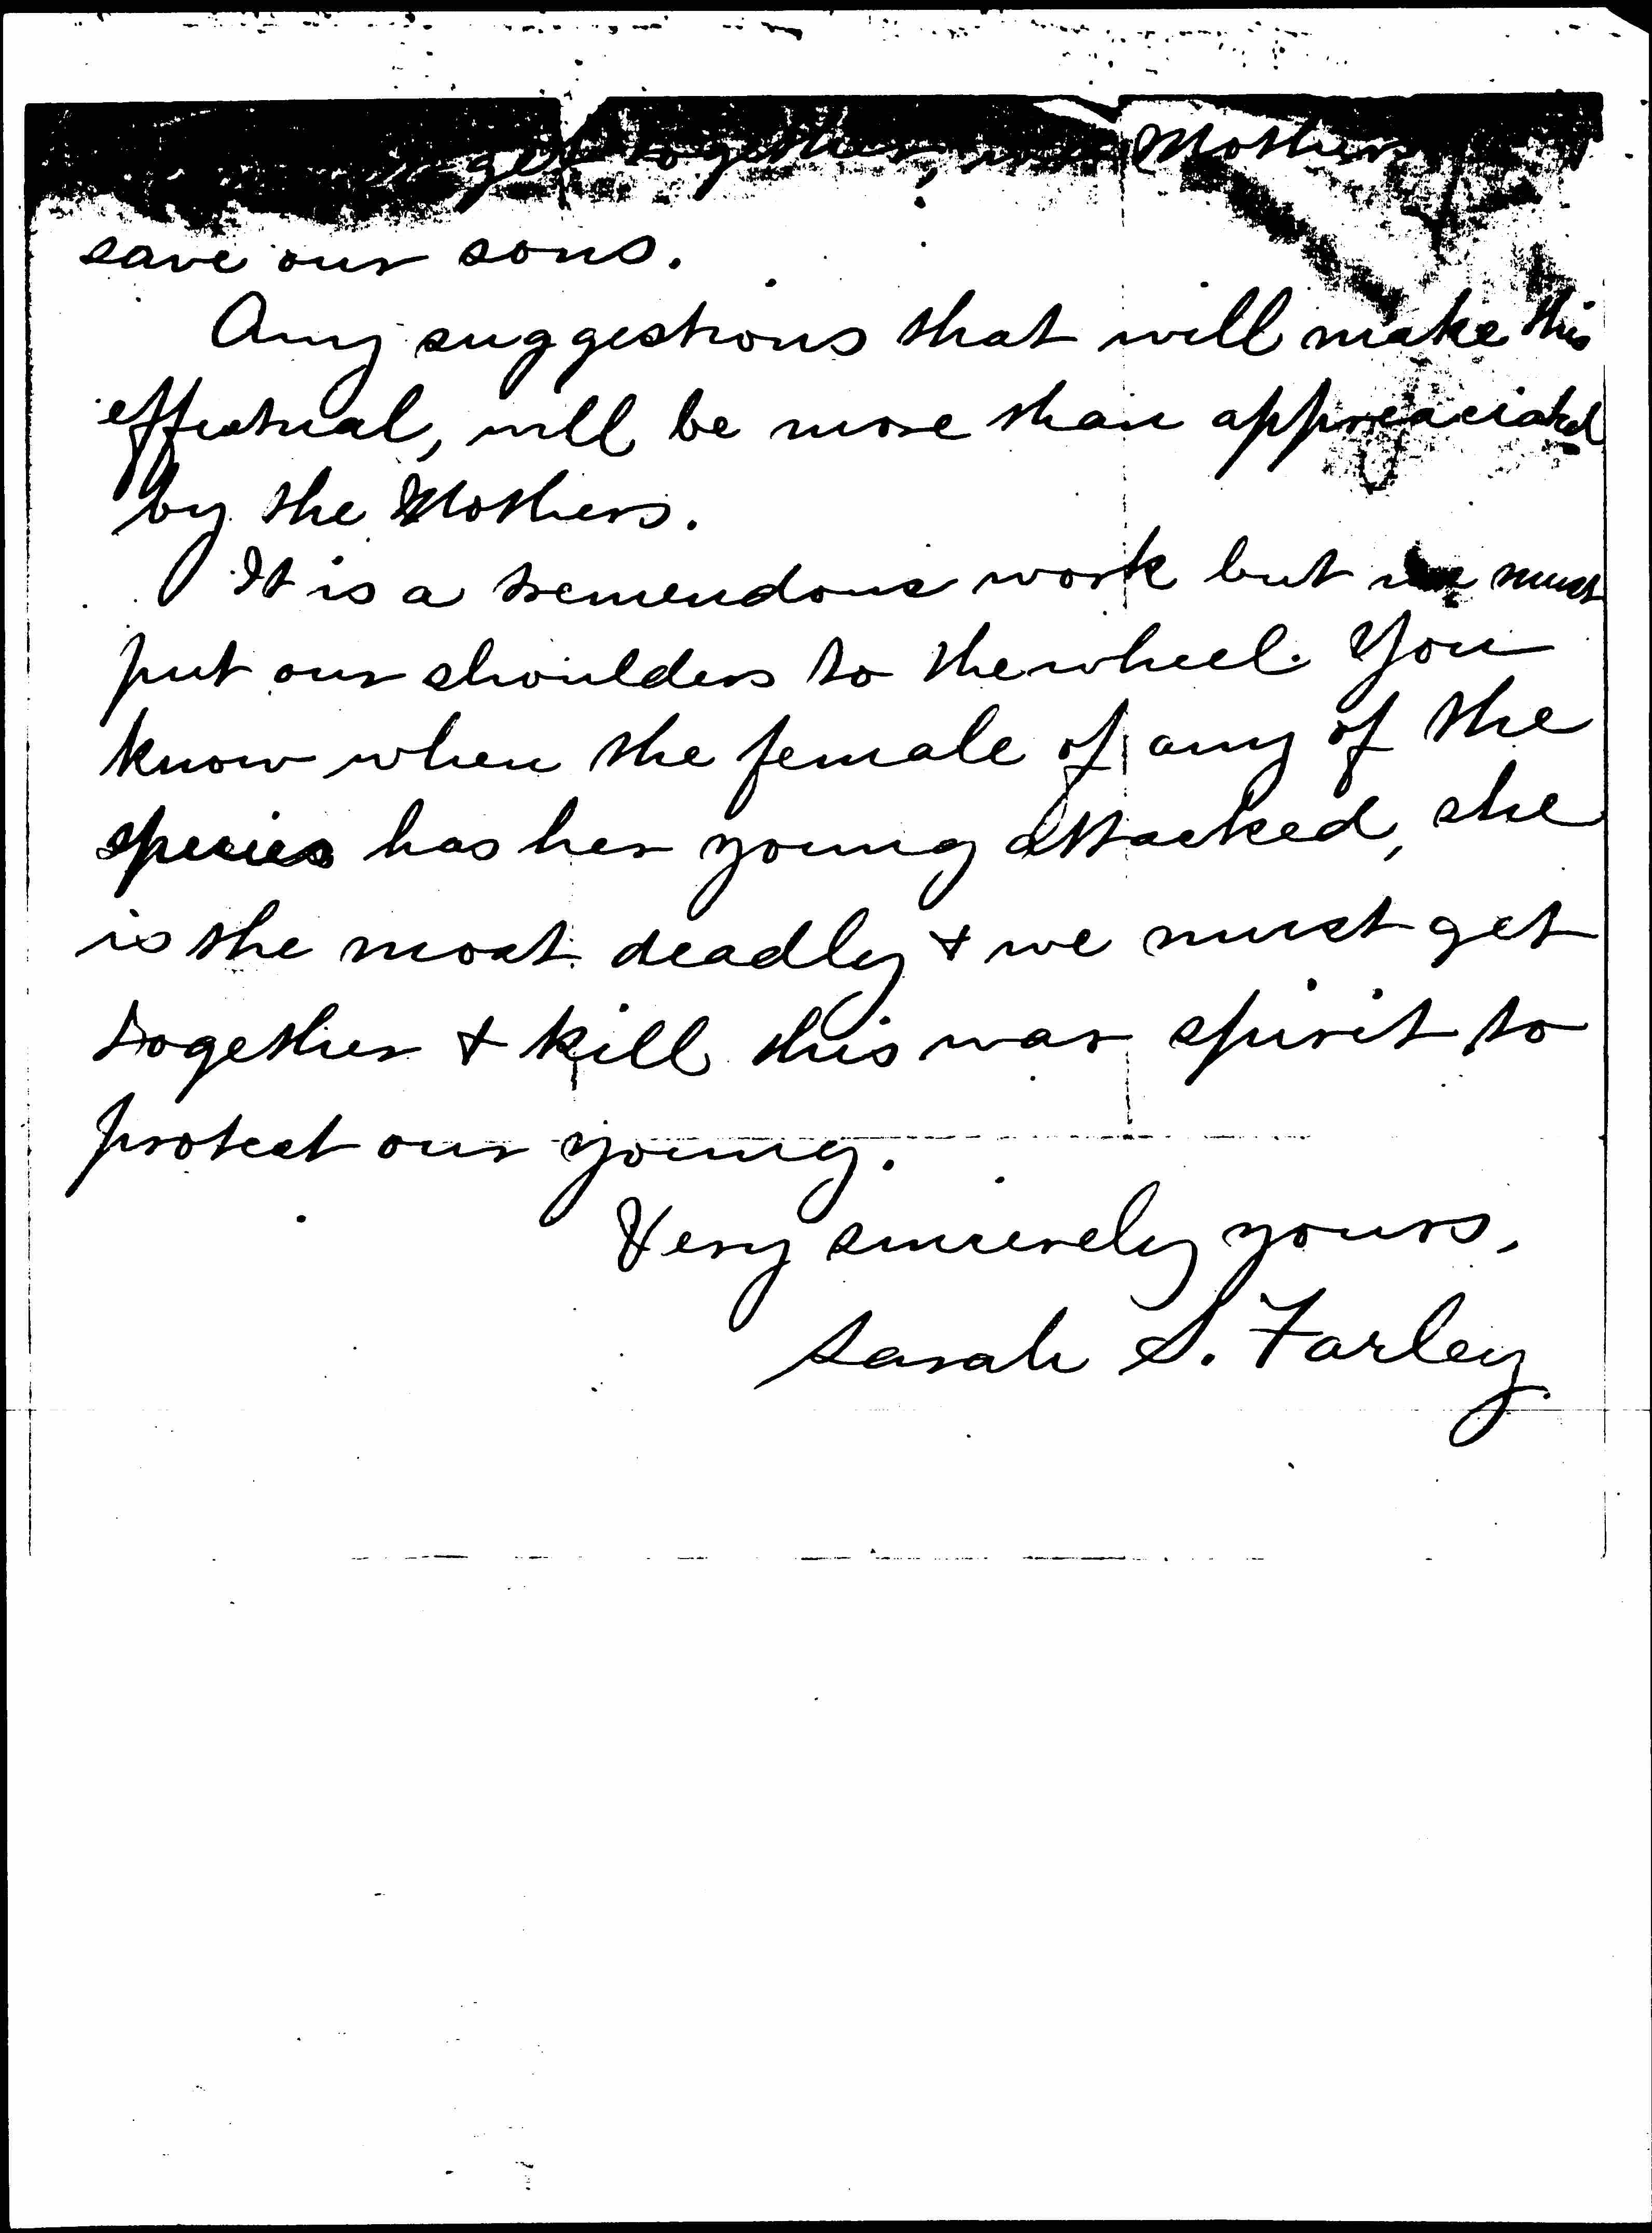 get together, Mothers
save our sons.
Any suggestions that will make this
effectual, will be more than appreaciated
by the Mothers.
It is a tremendous work but we must
put our shoulders to the wheel. You
know when the female of any of the
species has her young attacked, she
is the most deadly & we must get
together & kill this war spirit to
protect our young.
Very sincerely yours,
Sarah S. Farley.